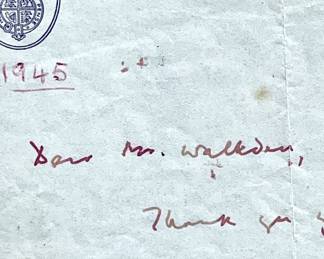 1945
Dear Mr. Walkden,
Thank you